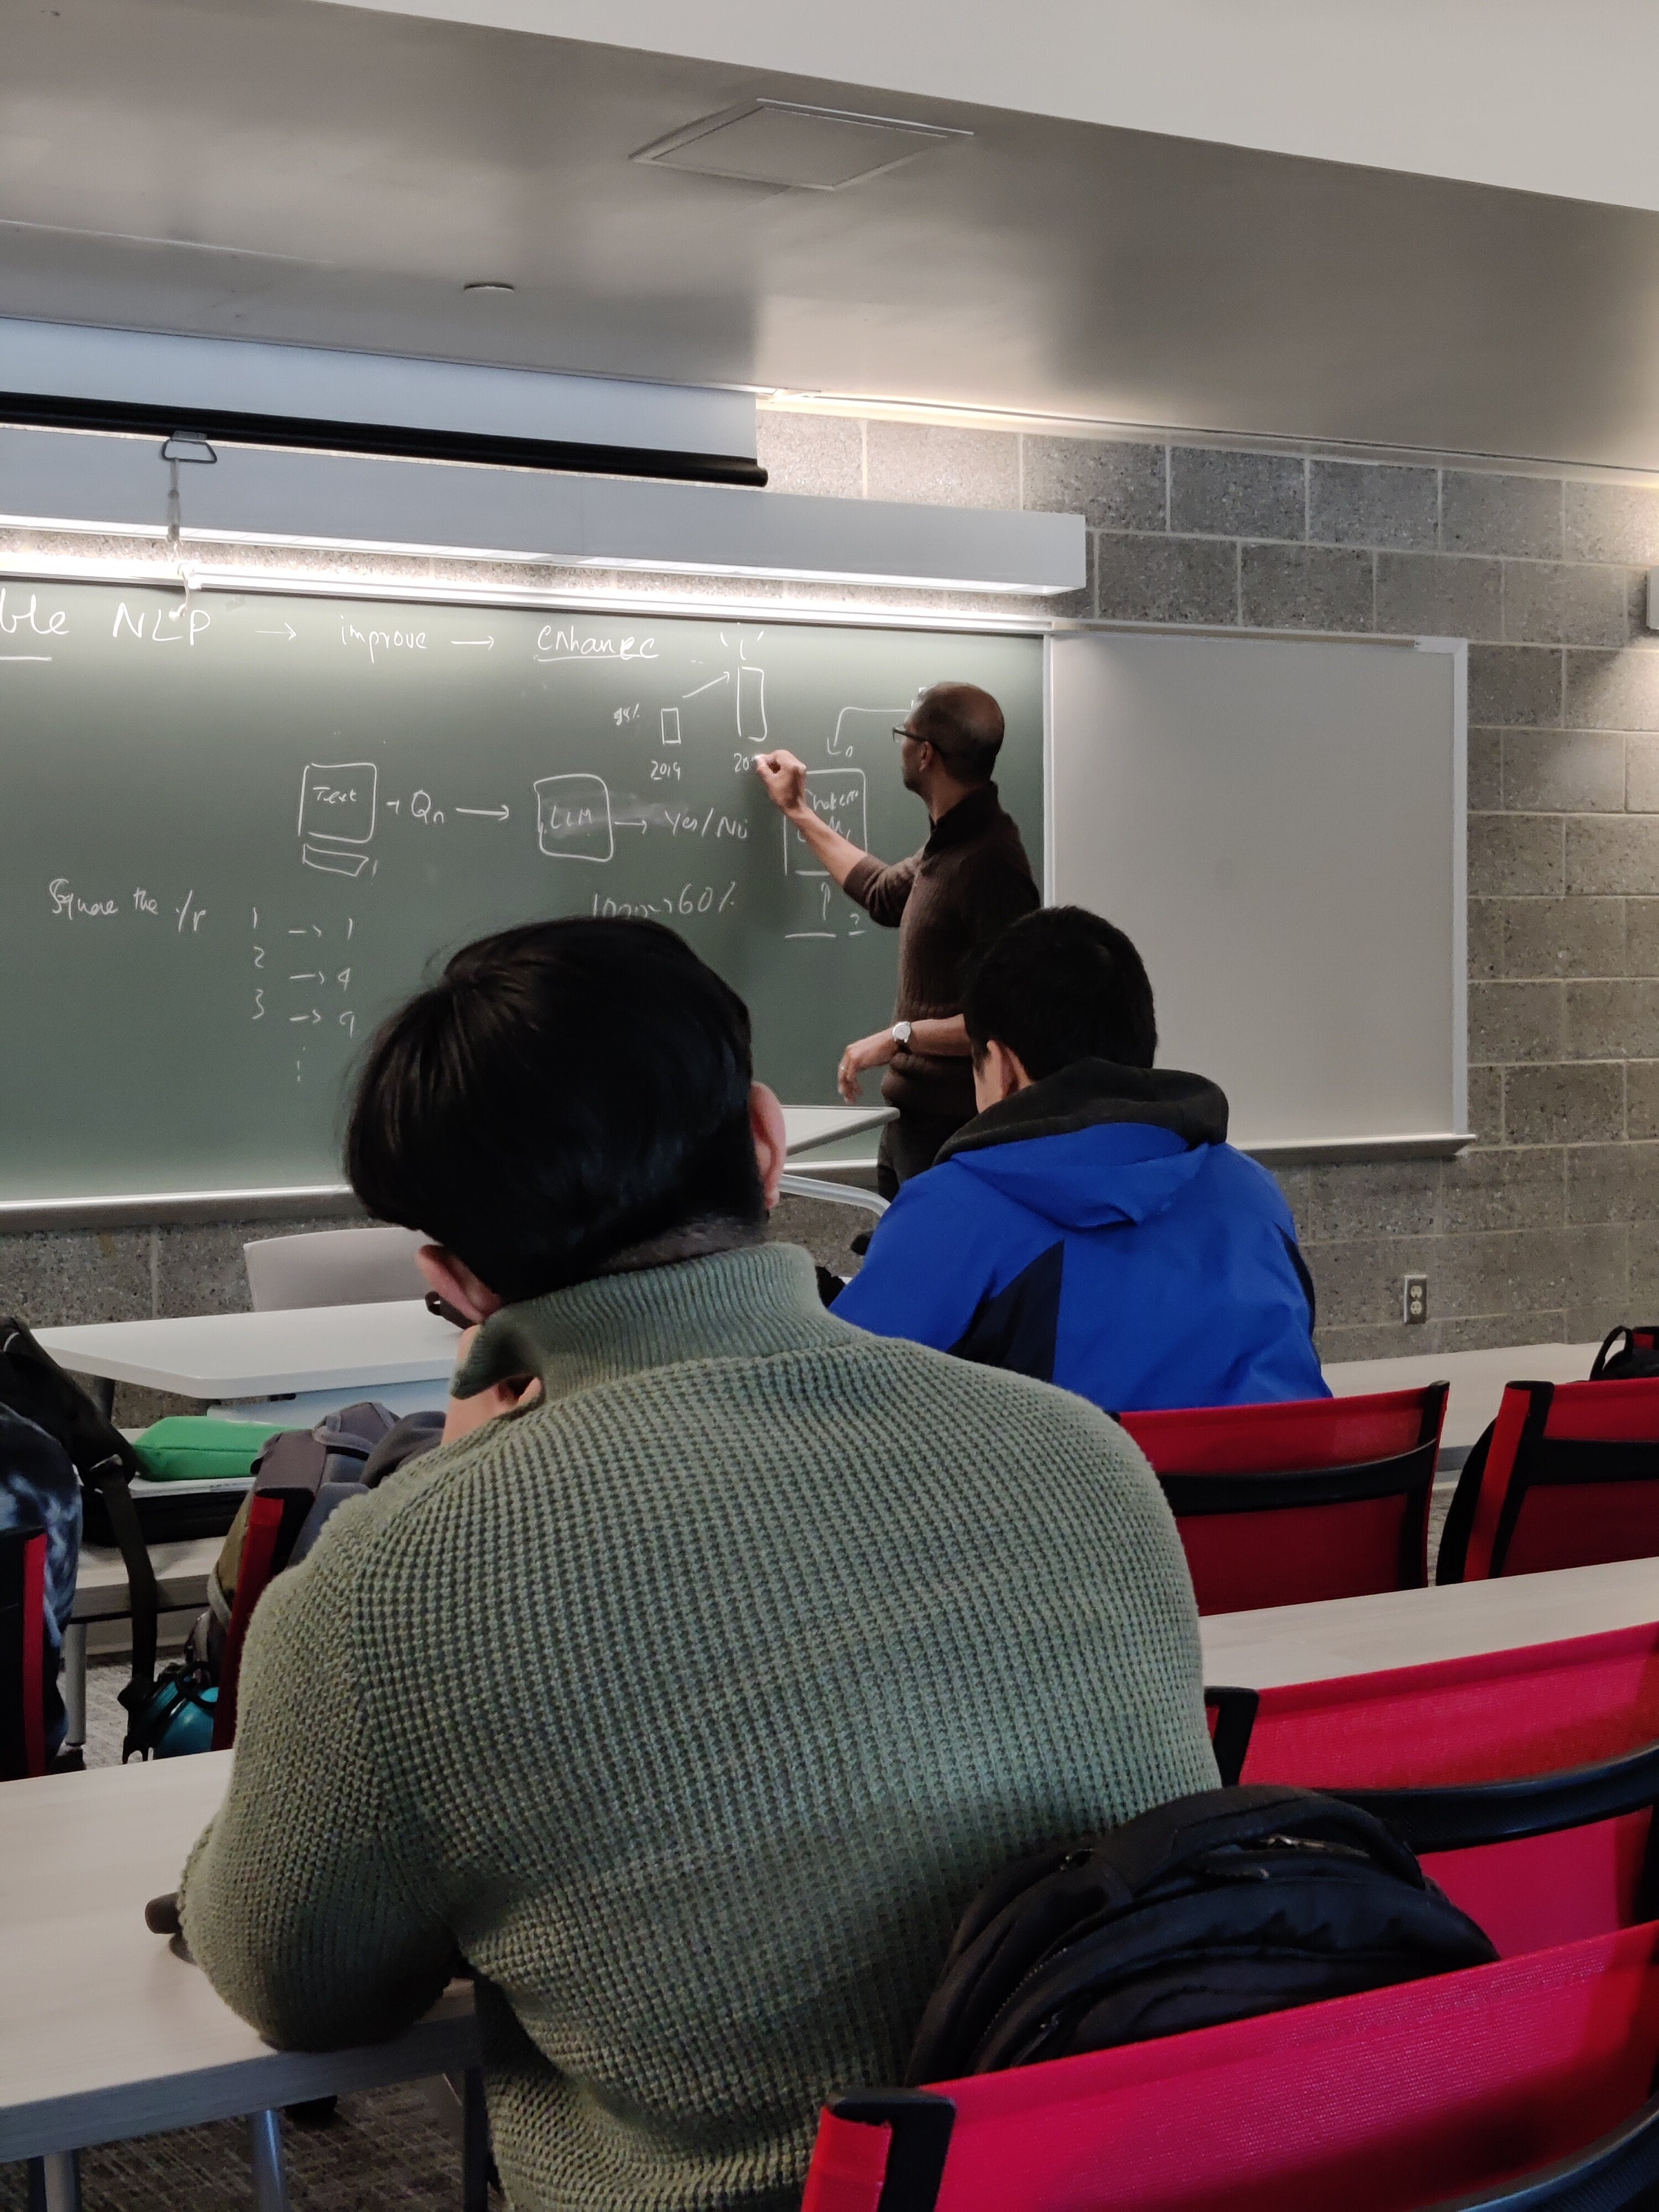 ble NLP → improve → enhance
2019
Text + Qn → LLM → Yes/No
60%
Square the i/p
1 → 1
2 → 4
3 → 9